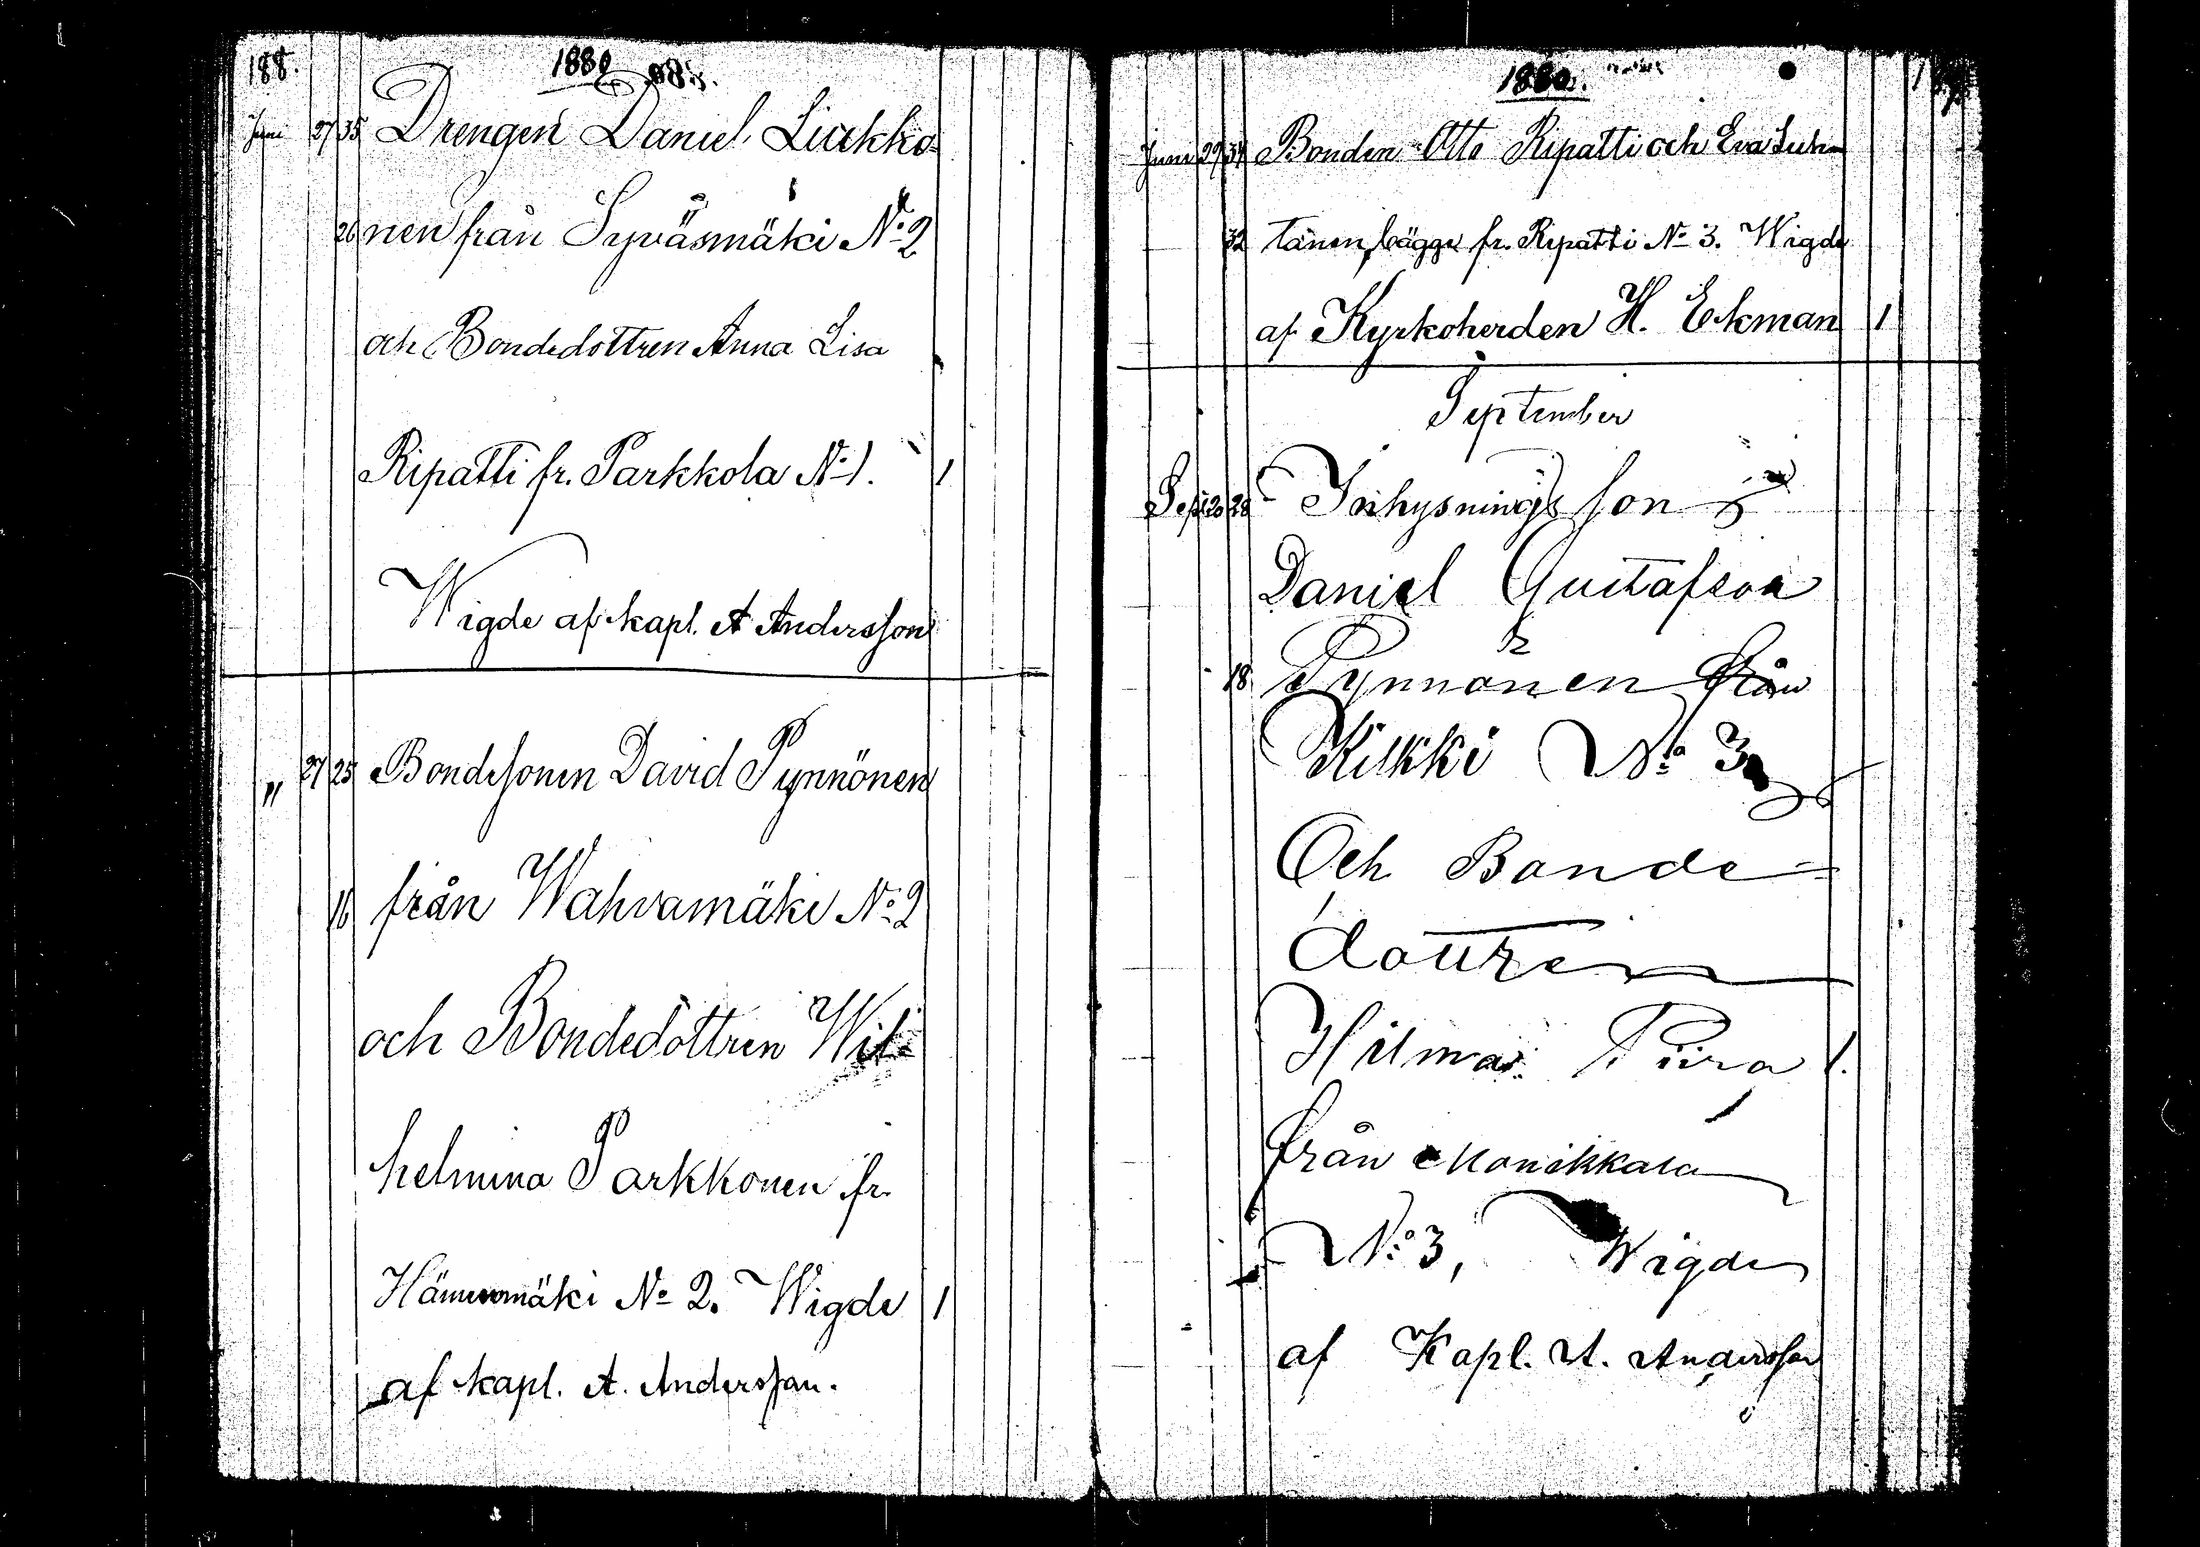 188.
1880
Juni 27 35 Drengen Daniel Liukko-
26 nen från Syväsmäki No 2
och Bondedottren Anna Lisa
Ripatti fr. Parkkola No 1. 1
Wigde af kapl. A Andersson
" 27 25 Bondesonen David Pynnönen
16 från Wahvamäki No 2
och Bondedottren Wil-
helmina Parkkonen fr.
Hämenmäki No 2. Wigde 1
af kapl. A. Andersson.
1880.
Juni 29 34 Bonden Otto Ripatti och Eva Luh-
32 tanen, bägge fr. Ripatti No 3. Wigde
af Kyrkoherden H. Ekman 1
September
Sept 20 28 Inhysnings son
Daniel Gustafson
18 Pynnönen från
Kilkki No 3
Och Bonde-
dottren
Hilma Piira 1.
från Monikkala
No 3, Wigde
af Kapl. A. Andersson